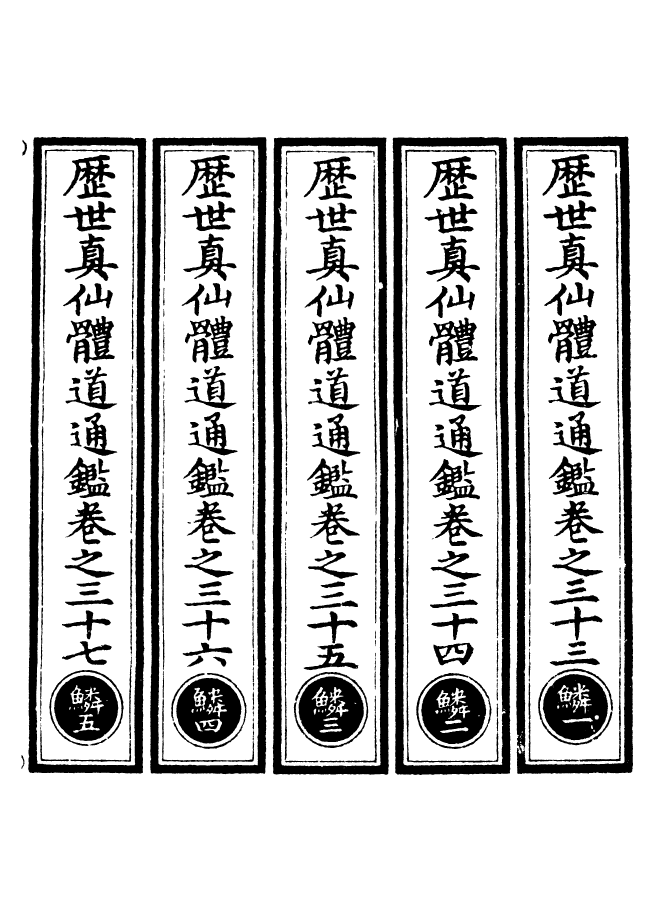 歷世真仙體道通鑑卷之三十三
鱗一
歷世真仙體道通鑑卷之三十四
鱗二
歷世真仙體道通鑑卷之三十五
鱗三
歷世真仙體道通鑑卷之三十六
鱗四
歷世真仙體道通鑑卷之三十七
鱗五